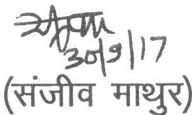 30/9/17
(संजीव माथुर)